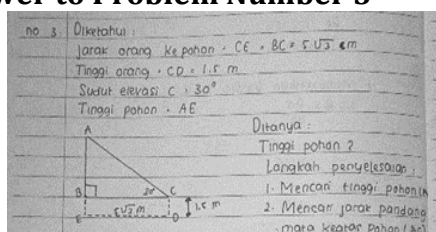 wer to Problem Number 3
no 3 Diketahui :
Jarak orang ke pohon = CE = BC = 5√3 m
Tinggi orang = CD = 1.5 m
Sudut elevasi C = 30°
Tinggi pohon = AE
Ditanya :
Tinggi pohon ?
Langkah penyelesaian :
1. Mencari tinggi pohon
2. Mencari jarak pandang
mata keatas pohon
A
B 30° C
5√3 m 1.5 m
E D